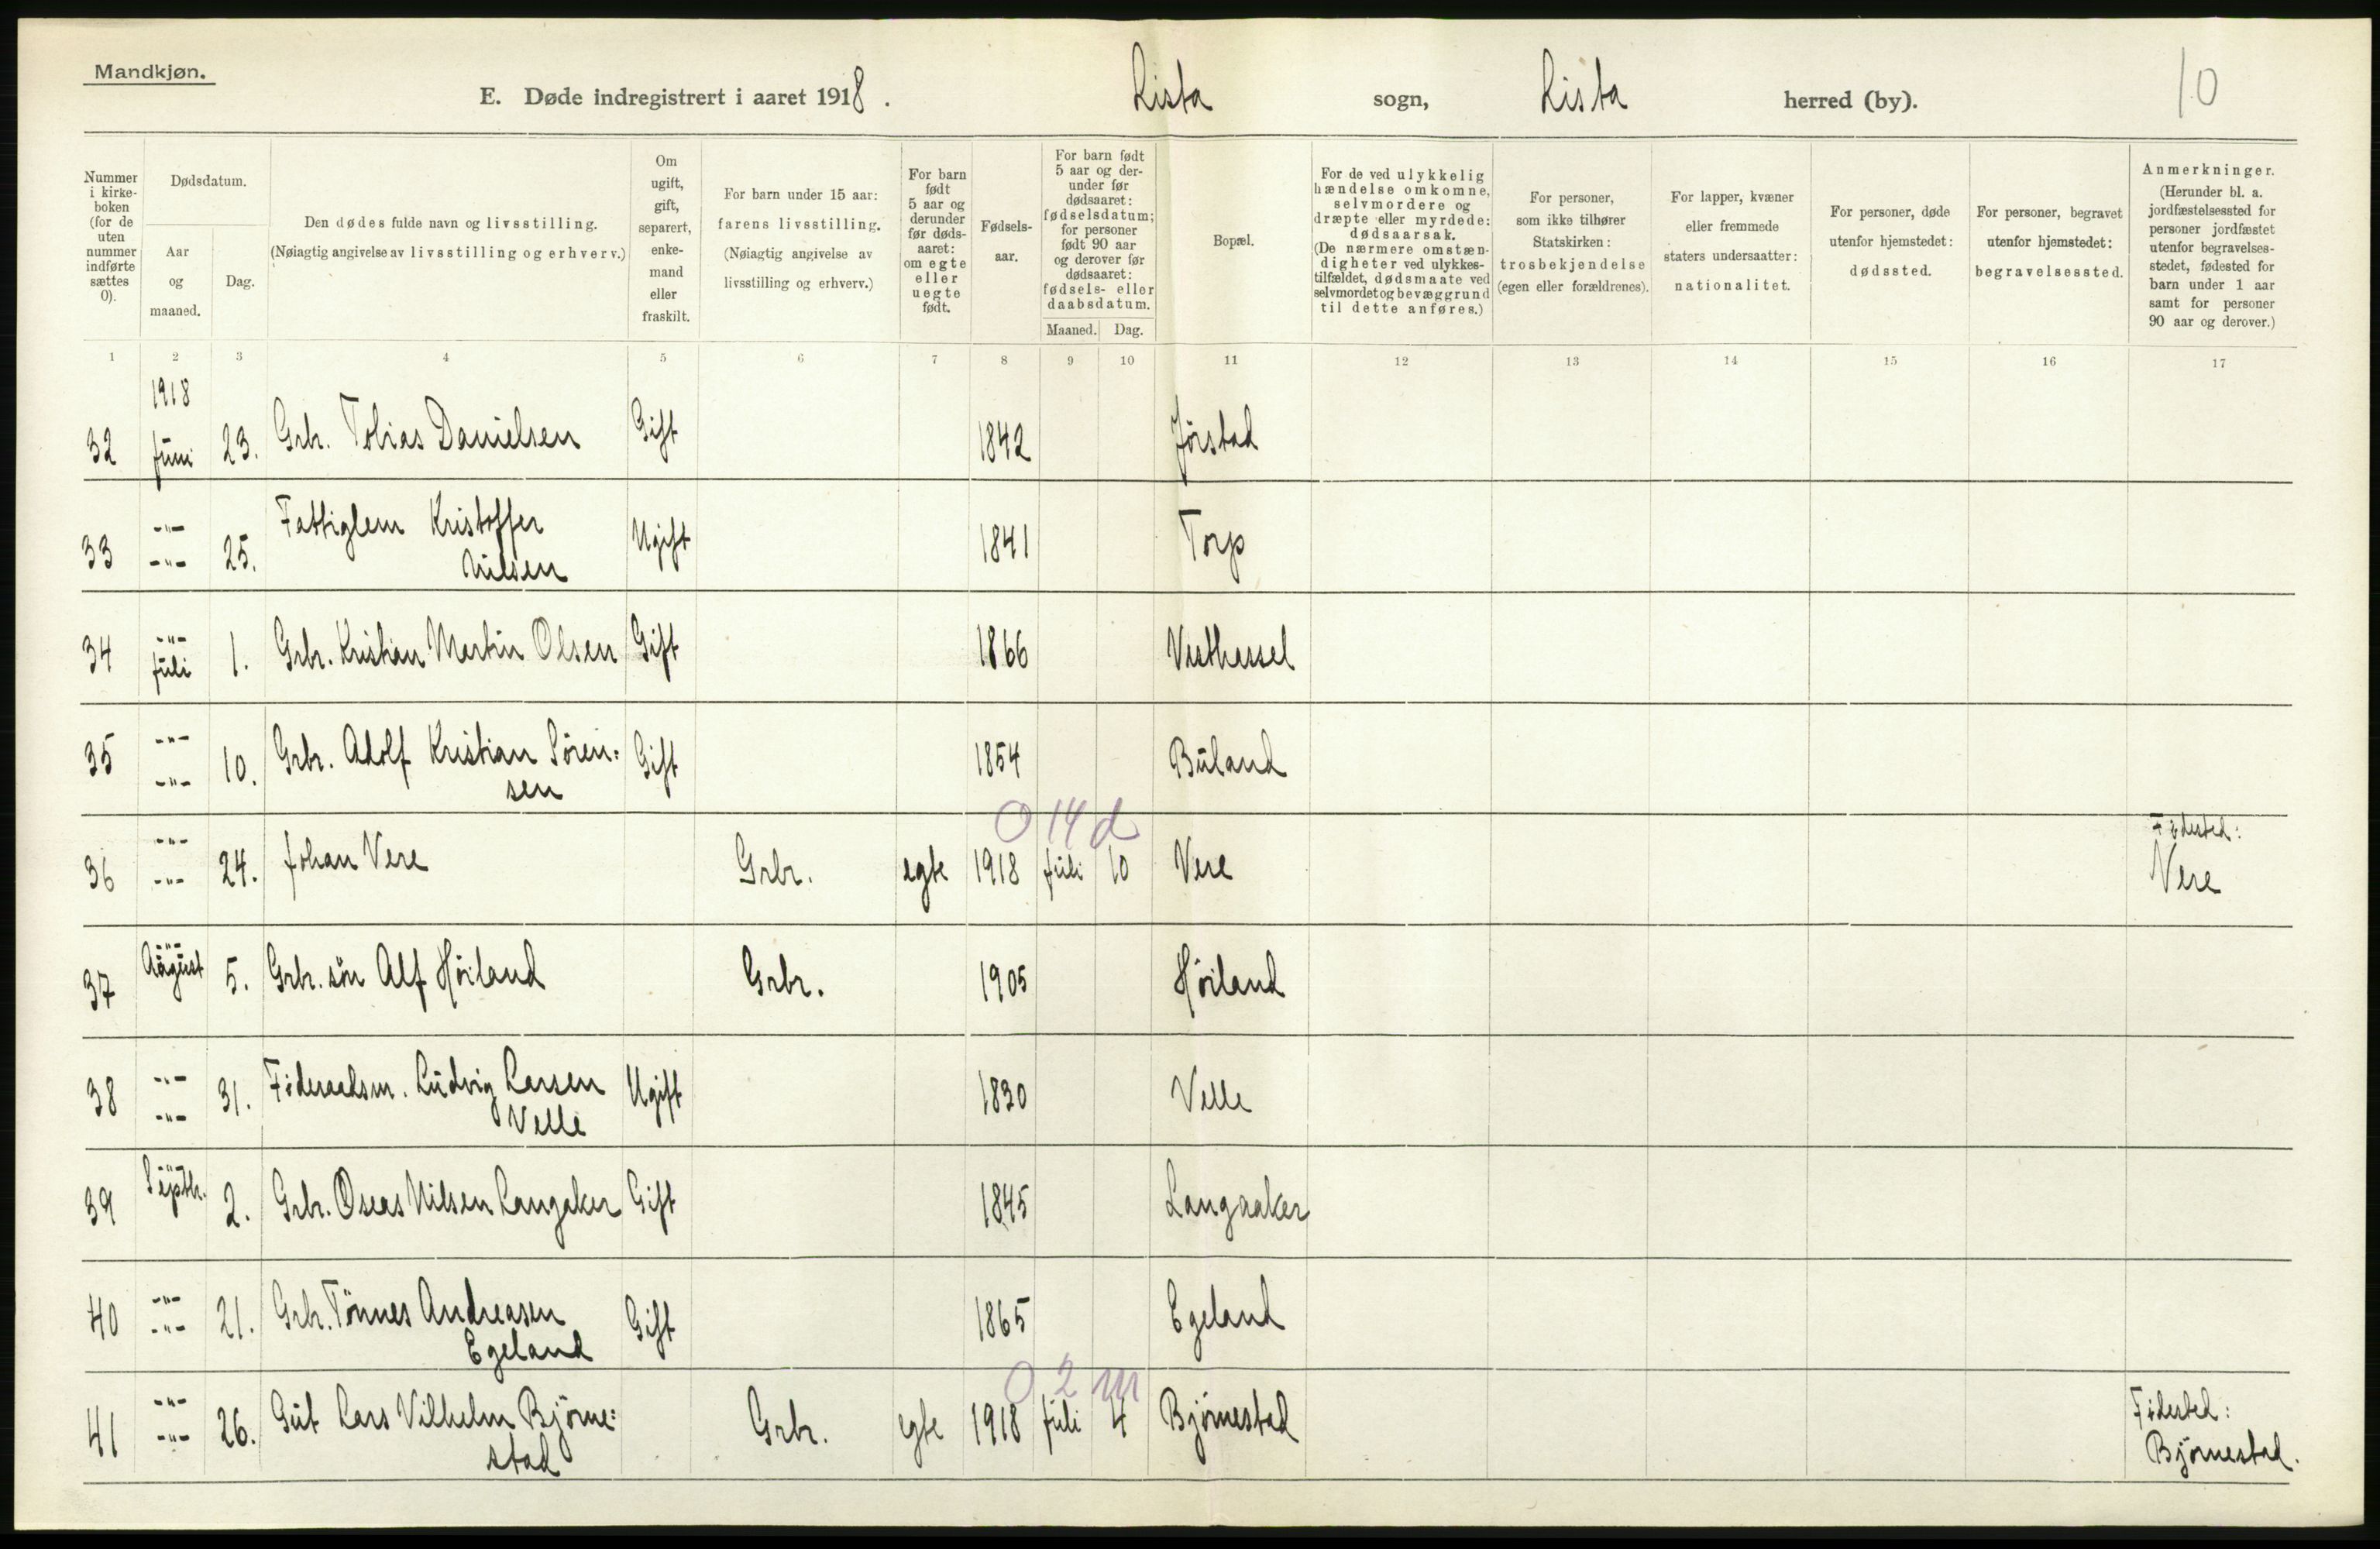 Mandkjøn.
E. Døde indregistrert i aaret 1918. Lista sogn, Lista herred (by). 10
Nummer
i kirke-
boken
(for de
uten
nummer
indførte
sættes
0).
Dødsdatum.
Aar
og
maaned.
Dag.
Den dødes fulde navn og livsstilling.
(Nøiagtig angivelse av livsstilling og erhverv.)
Om
ugift,
gift,
separert,
enke-
mand
eller
fraskilt.
For barn under 15 aar:
farens livsstilling.
(Nøiagtig angivelse av
livsstilling og erhverv.)
For barn
født
5 aar og
derunder
før døds-
aaret:
om egte
eller
uegte
født.
Fødsels-
aar.
For barn født
5 aar og der-
under før
dødsaaret:
fødselsdatum;
for personer
født 90 aar
og derover før
dødsaaret:
fødsels- eller
daabsdatum.
Maaned. Dag.
Bopæl.
For de ved ulykkelig
hændelse omkomne,
selvmordere og
dræpte eller myrdede:
dødsaarsak.
(De nærmere omstæn-
digheter ved ulykkes-
tilfældet, dødsmaate ved
selvmordet og bevæggrund
til dette anføres.)
For personer,
som ikke tilhører
Statskirken:
trosbekjendelse
(egen eller forældrenes).
For lapper, kvæner
eller fremmede
staters undersaatter:
nationalitet.
For personer, døde
utenfor hjemstedet:
dødssted.
For personer, begravet
utenfor hjemstedet:
begravelsessted.
Anmerkninger.
(Herunder bl. a.
jordfæstelsessted for
personer jordfæstet
utenfor begravelses-
stedet, fødested for
barn under 1 aar
samt for personer
90 aar og derover.)
1 2 3 4 5 6 7 8 9 10 11 12 13 14 15 16 17
1918
32 Juni 23. Grbr. Tobias Danielsen Gift 1842 Jörstad
-"- Fattiglem Kristoffer
33 -"- 25. Nilsen Ugift 1841 Torp
-"-
34 Juli 1. Grbr. Kristian Martin Olsen Gift 1866 Vesthassel
-"-
35 -"- 10. Grbr. Adolf Kristian Sören= Gift 1854 Büland
sen
0 14 d
-"- Födested:
36 -"- 24. Johan Vere Grbr. egte 1918 Juli 10 Vere Vere
-"-
37 August 5. Grbr. sön Alf Höiland Grbr. 1905 Höiland
-"-
38 -"- 31. Föderaadsm. Ludvig Larsen Ugift 1830 Velle
Velle
-"-
39 Septbr. 2. Grbr. Oseas Nilsen Langaker Gift 1845 Langaaker
-"-
40 -"- 21. Grbr. Tönnes Andreasen Gift 1865 Egeland
Egeland
0 2 m
-"- Födested:
41 -"- 26. Gut Lars Vilhelm Björne= Grbr. egte 1918 Juli 4 Björnestad Björnestad.
stad